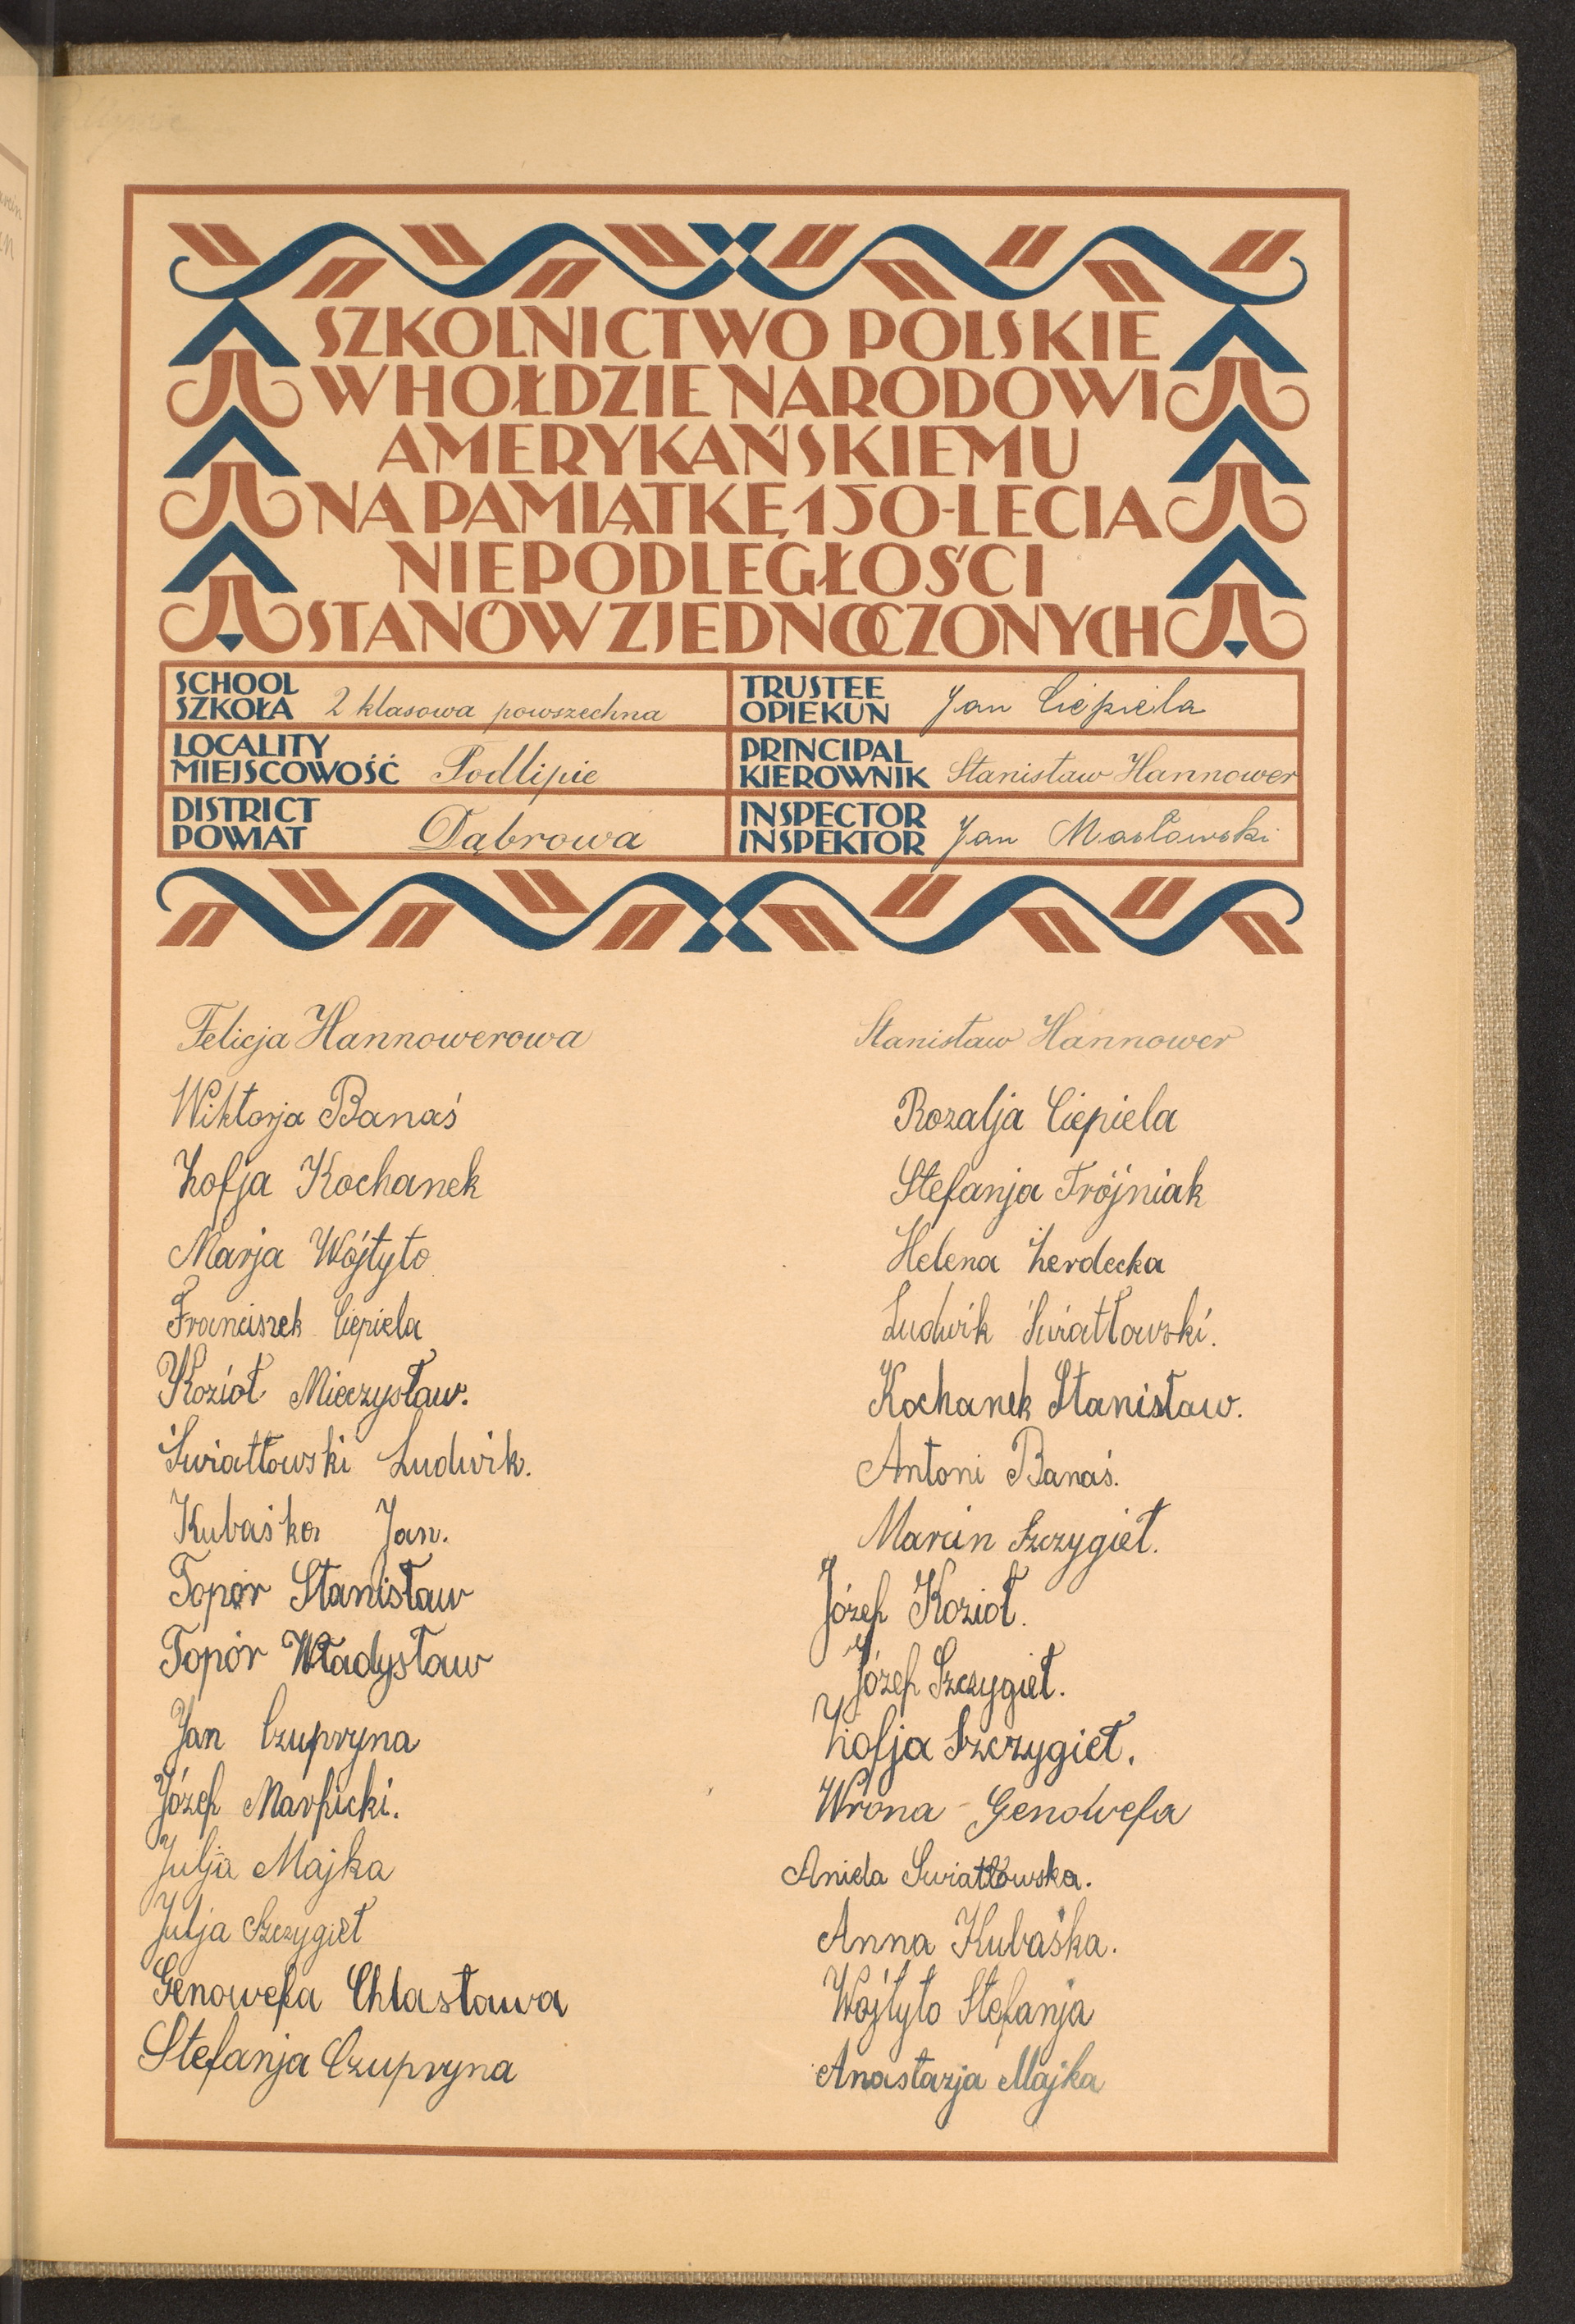 SZKOLNICTWO POLSKIE
W HOŁDZIE NARODOWI
AMERYKAŃSKIEMU
NA PAMIĄTKĘ 150-LECIA
NIEPODLEGŁOŚCI
STANÓW ZJEDNOCZONYCH
SCHOOL
SZKOŁA 2 klasowa powszechna
TRUSTEE
OPIEKUN Jan Ciepiela
LOCALITY
MIEJSCOWOŚĆ Podlipie
PRINCIPAL
KIEROWNIK Stanisław Hannower
DISTRICT
POWIAT Dąbrowa
INSPECTOR
INSPEKTOR Jan Masłowski
Felicja Hannowerowa
Wiktorja Banaś
Zofja Kochanek
Marja Wójtyto
Franciszek Ciepiela
Kozioł Mieczysław.
Światłowski Ludwik.
Kubaśka Jan.
Topór Stanisław
Topór Władysław
Jan Czupryna
Józef Marficki.
Julja Majka
Julja Szczygieł
Genowefa Chlastawa
Stefanja Czupryna
Stanisław Hannower
Rozalja Ciepiela
Stefanja Trójniak
Helena Żerdecka
Ludwik Światłowski.
Kochanek Stanisław.
Antoni Banaś.
Marcin Szczygieł.
Józef Kozioł.
Józef Szczygieł.
Zofja Szczygieł.
Wrona - Genowefa
Aniela Swiatłowska.
Anna Kubaśka.
Wójtyto Stefanja
Anastazja Majka